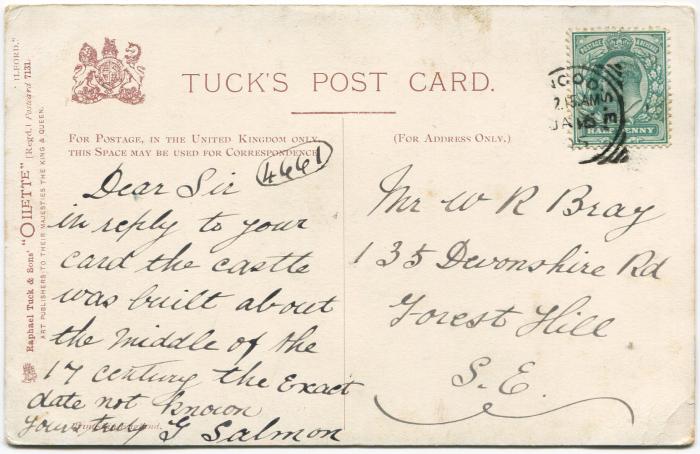 TUCK'S POST CARD.
FOR POSTAGE, IN THE UNITED KINGDOM ONLY,
THIS SPACE MAY BE USED FOR CORRESPONDENCE
(FOR ADDRESS ONLY.)
POSTAGE & REVENUE
HALFPENNY
2.15 AM
JA
4661
Dear Sir
in reply to your
card the castle
was built about
the middle of the
17 century the Exact
date not known
yours truly G Salmon
Mr W R Bray
135 Devonshire Rd
Forest Hill
S.E.
Raphael Tuck & Sons' "OILETTE" [Regd.] Postcard 7131.
ART PUBLISHERS TO THEIR MAJESTIES THE KING & QUEEN.
ILFORD."